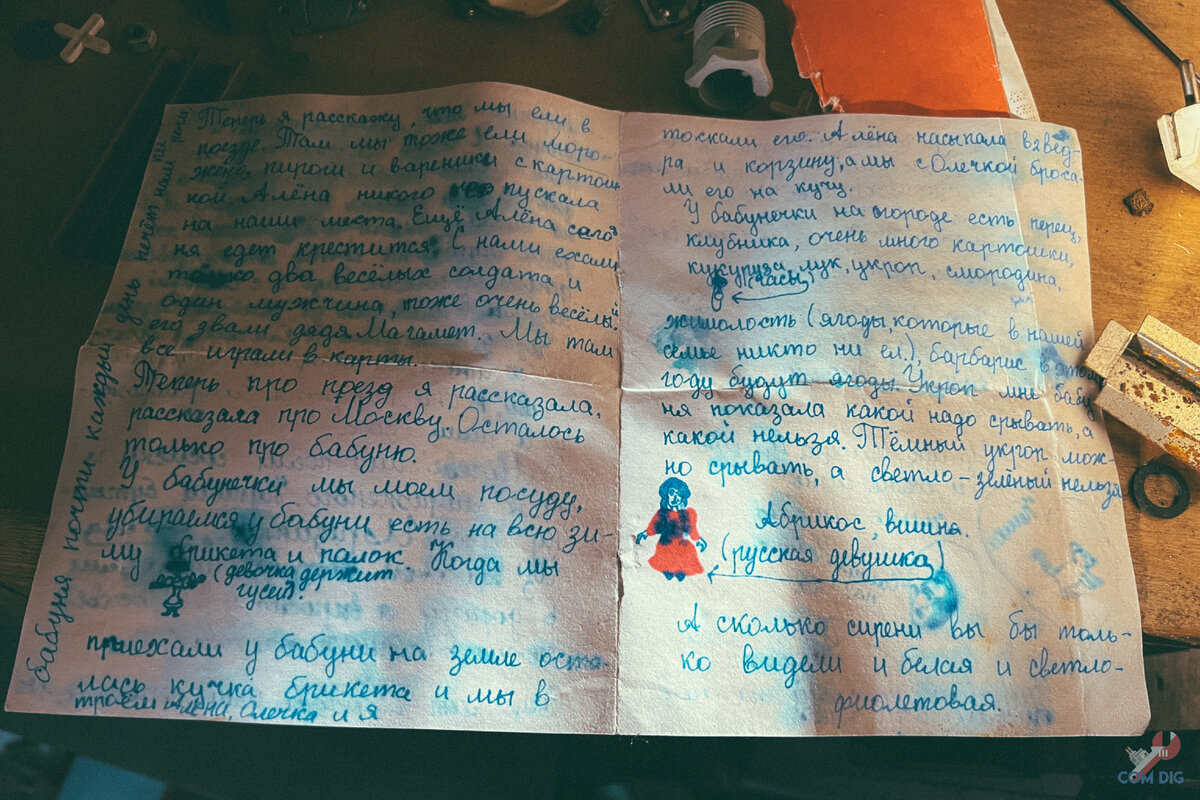 Теперь я расскажу, что мы ели в
поезде. Там мы тоже ели моро-
жене, пироги и вареники с картош
кой. Алёна никого не пускала
на наши места. Ещё Алёна
ня едет крестится. С нами ехали
только два весёлых солдата и
один мужчина, тоже очень весёлый
его звали дядя Магамет. Мы там
все играли в карты.
Теперь про поезд я рассказала,
рассказала про Москву. Осталось
только про бабуню.
У бабунечки мы моем посуду,
убираемся у бабуни есть на всю зи-
му брикета и палок. Когда мы
(девочка держит
гусей).
приехали у бабуни на земле оста-
лась кучка брикета и мы в
троём Алёна, Олечка и я
бабуня почти каждый день печёт нам пироги
тоскали его. Алёна насыпала в 2 вед-
ра и корзину, а мы с Олечкой броса-
ли его на кучу.
У бабунечки на огороде есть перец,
клубника, очень много картошки,
кукуруза, лук, укроп, смородина,
(часы)
жимолость (ягоды, которые в нашей
семье никто ни ел.), барбарис в этом
году будут ягоды. Укроп мне бабу
ня показала какой надо срывать, а
какой нельзя. Тёмный укроп мож-
но срывать, а светло-зелёный нельзя
Абрикос, вишня.
(русская девушка)
А сколько сирени вы бы толь-
ко видели и белая и светло-
фиолетовая.
COM DIG